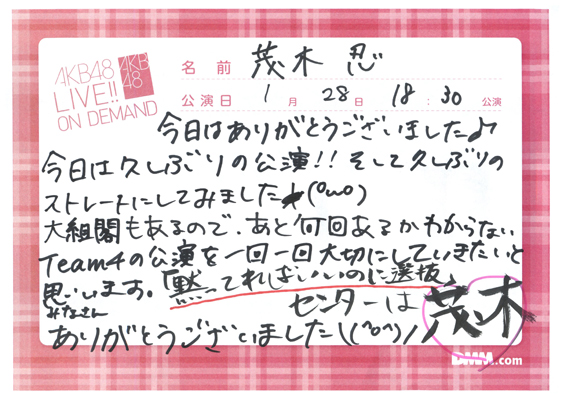 AKB48
LIVE!!
ON DEMAND
AKB
48
名前 茂木 忍
公演日 1月28日 18:30公演
今日はありがとうございました♪
今日は久しぶりの公演!! そして久しぶりの
ストレートにしてみました★(°ω°)
大組閣もあるので、あと何回あるかわからない
Team4の公演を一回一回大切にしていきたいと
思います。「黙ってればいいのに選抜」
センターは 茂木
みなさん
ありがとうございました\(^o^)/
DMM.com